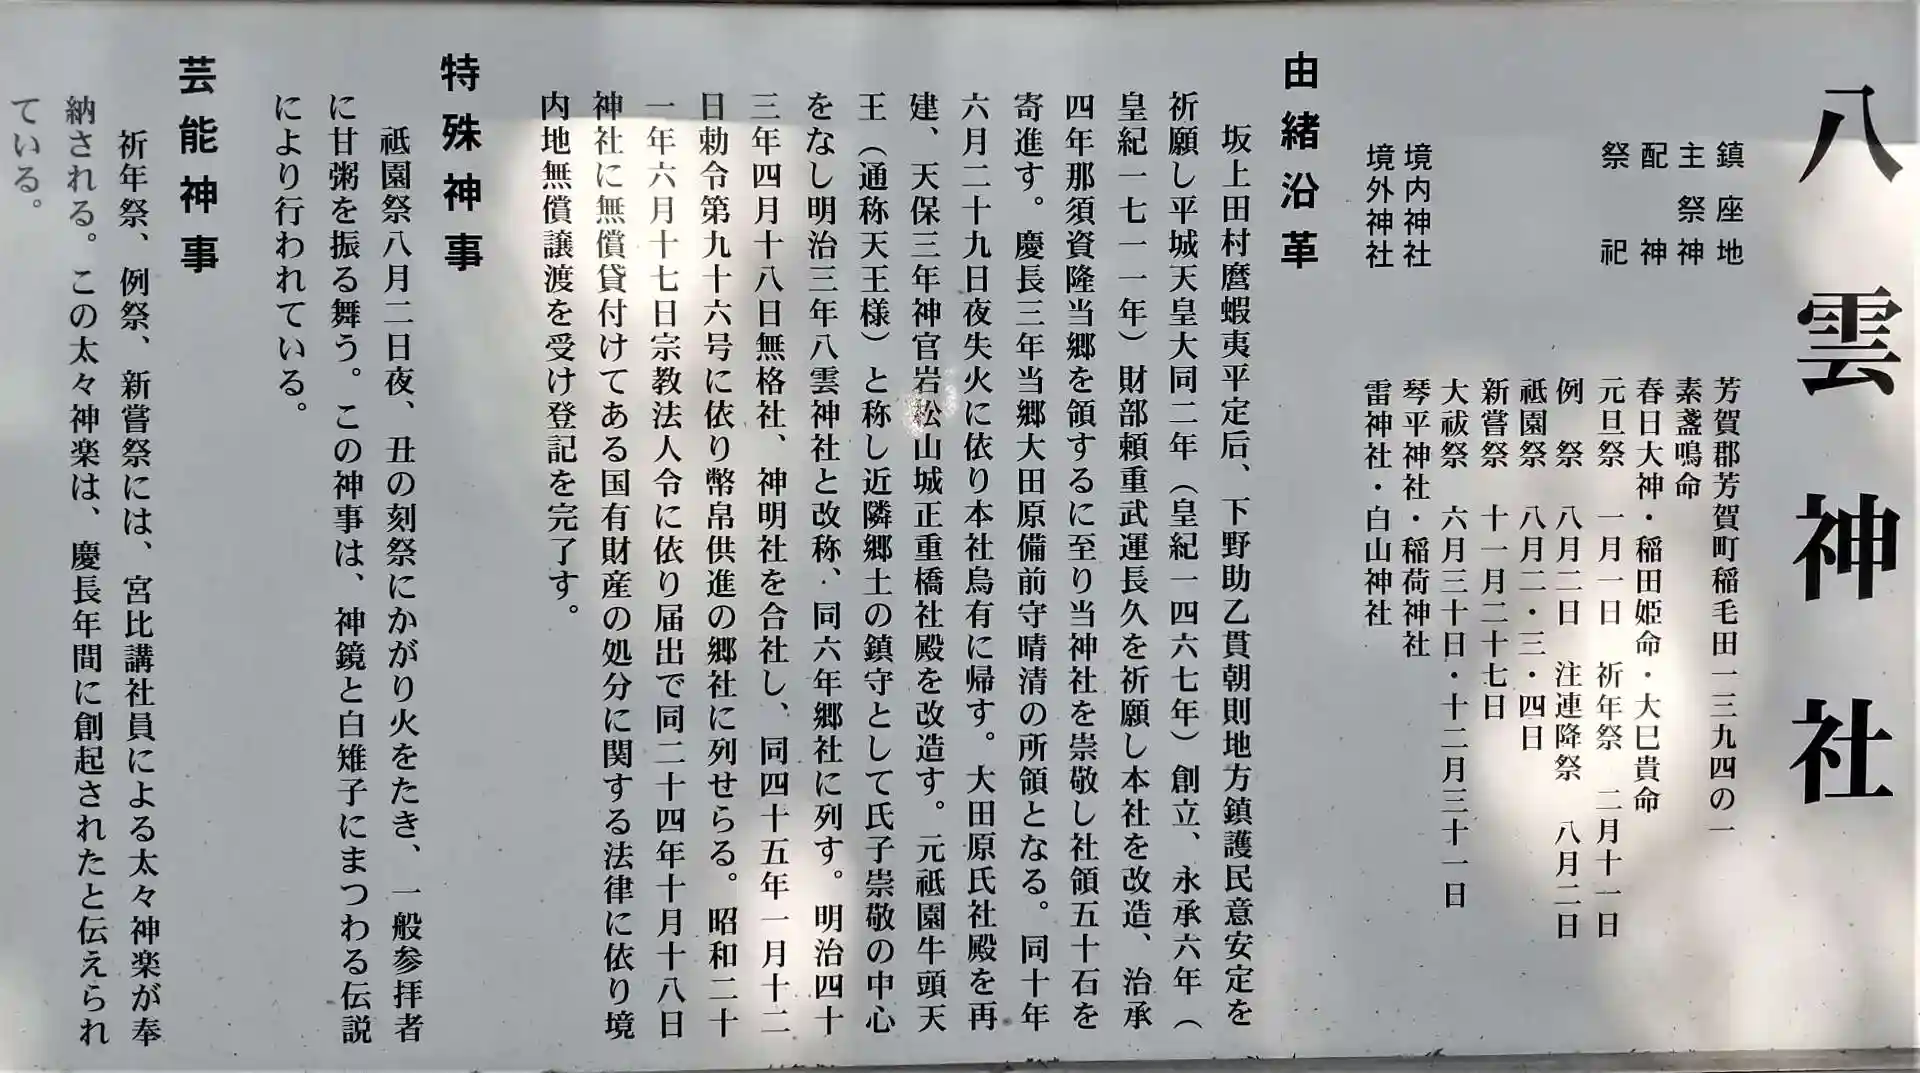 八雲神社
鎮座地　芳賀郡芳賀町稲毛田一三九四の一
主祭神　素盞鳴命
配神　春日大神・稲田姫命・大巳貴命
祭祀　元旦祭　一月一日　祈年祭　二月十一日
例　祭　八月二日　注連降祭　八月二日
祇園祭　八月二・三・四日
新嘗祭　十一月二十七日
大祓祭　六月三十日・十二月三十一日
境内神社　琴平神社・稲荷神社
境外神社　雷神社・白山神社
由緒沿革
坂上田村麿蝦夷平定后、下野助乙貫朝則地方鎮護民意安定を
祈願し平城天皇大同二年（皇紀一四六七年）創立、永承六年（
皇紀一七一一年）財部頼重武運長久を祈願し本社を改造、治承
四年那須資隆当郷を領するに至り当神社を崇敬し社領五十石を
寄進す。慶長三年当郷大田原備前守晴清の所領となる。同十年
六月二十九日夜失火に依り本社烏有に帰す。大田原氏社殿を再
建、天保三年神官岩松山城正重橋社殿を改造す。元祇園牛頭天
王（通称天王様）と称し近隣郷土の鎮守として氏子崇敬の中心
をなし明治三年八雲神社と改称、同六年郷社に列す。明治四十
三年四月十八日無格社、神明社を合社し、同四十五年一月十二
日勅令第九十六号に依り幣帛供進の郷社に列せらる。昭和二十
一年六月十七日宗教法人令に依り届出で同二十四年十月十八日
神社に無償貸付けてある国有財産の処分に関する法律に依り境
内地無償譲渡を受け登記を完了す。
特殊神事
祇園祭八月二日夜、丑の刻祭にかがり火をたき、一般参拝者
に甘粥を振る舞う。この神事は、神鏡と白雉子にまつわる伝説
により行われている。
芸能神事
祈年祭、例祭、新嘗祭には、宮比講社員による太々神楽が奉
納される。この太々神楽は、慶長年間に創起されたと伝えられ
ている。